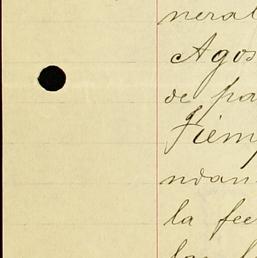 neral
Agos
de pa
Tiemp
ndan
la fee